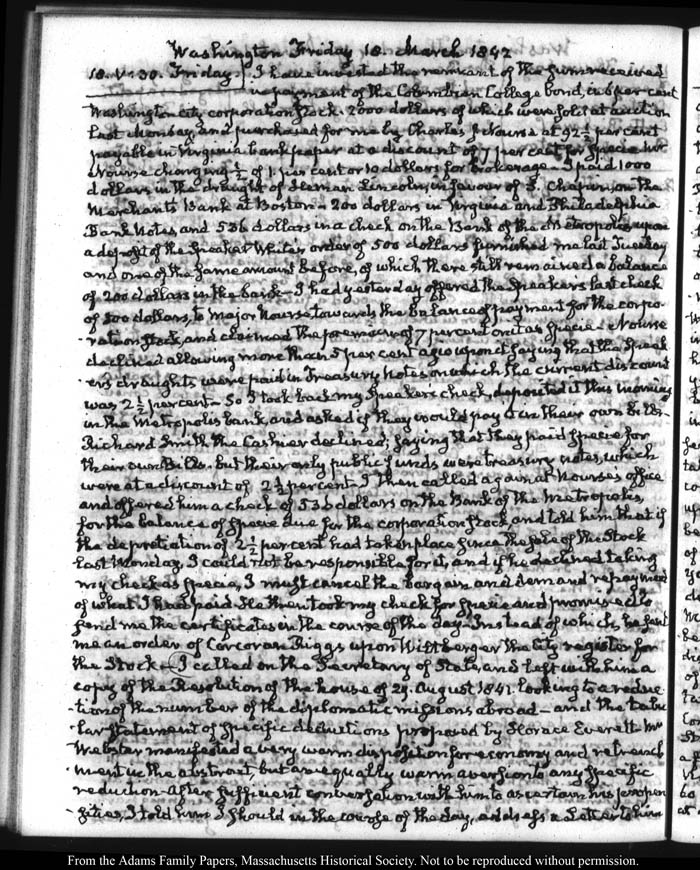 Washington Friday 18. March 1842
18. V:30. Friday. I have invested the remnant of the sum received
in payment of the Columbian College bond, in 6 per cent
Washington city corporation Stock. 2000 dollars of which were sold at auction
last Monday, and purchased for me by Charles J Nourse at 92½ per cent
payable in Virginia bank paper at a discount of 7 per cent for specie Mr
Nourse charging ½ of 1. per cent or 10 dollars for brokerage. I paid 1000
dollars in the draught of Heman Lincoln, in favour of S. Chapin, on the
Merchants Bank at Boston—200 dollars in Virginia and Philadelphia
Bank Notes, and 536 dollars in a check on the Bank of the Metropolis upon
a deposit of the Speaker White's order of 500 dollars furnished me last Tuesday
and one of the same amount before, of which there still remained a balance
of 200 dollars in the bank—I had yesterday offered the Speakers last check
of 500 dollars, to Major Nourse towards the balance of payment for the corpo-
-ration Stock, and claimed the premium of 7 per cent on it as specie—Nourse
declined allowing more than 5 per cent agio upon it saying that the Speak
-er's draughts were paid in Treasury Notes on which the current discount
was 2½ per cent—So I took back my Speaker's check, deposited it this morning
in the Metropolis bank, and asked if they would pay it in their own bills.
Richard Smith the Cashier declined; saying that they paid specie for
their own Bills. but their only public funds were treasury notes, which
were at a discount of 2½ per cent—I then called again at Nourse's office
and offered him a check of 536 dollars on the Bank of the Metropolis,
for the balance of specie due for the corporation Stock, and told him that if
the depreciation of 2½ per cent had taken place since the sale of the Stock
last Monday, I could not be responsible for it, and if he declined taking
my check as specie, I must cancel the bargain and demand repayment
of what I had paid. He then took my check for specie and promised to
send me the certificates in the course of the day—Instead of which, he sent
me an order of Corcoran Riggs upon Wiltberger the City register for
the Stock—I called on the Secretary of State, and left with him a
copy of the Resolution of the house of 29. August 1841. looking to a reduc
-tion of the number of the diplomatic missions abroad—and the tabu
-lar statement of specific deductions proposed by Horace Everett. Mr
Webster manifested a very warm disposition for economy and retrench
-ment in the abstract, but an equally warm aversion to any specific
reduction—After sufficient conversation with him to ascertain his propen
-sities, I told him I should in the course of the day, address a Letter to him
From the Adams Family Papers, Massachusetts Historical Society. Not to be reproduced without permission.